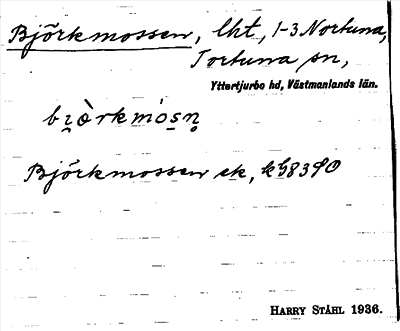 Björkmossen, lht, 1-3 Nortuna,
Tortuna sn,
Yttertjurbo hd, Västmanlands län.
bi̯òrkmòsn̥
Björkmossen ek, kB8390
HARRY STÅHL 1936.